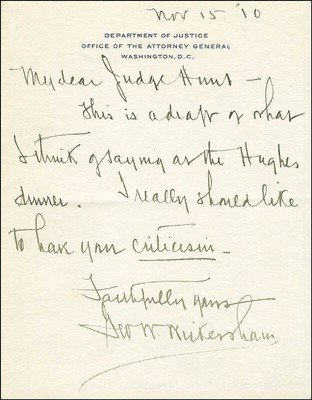 Nov 15. '10
DEPARTMENT OF JUSTICE
OFFICE OF THE ATTORNEY GENERAL
WASHINGTON, D.C.
My dear Judge Hunt –
This is a draft of what
I think of saying at the Hughes
dinner. I really should like
to have your criticism –
Faithfully yours
Geo W. Wickersham